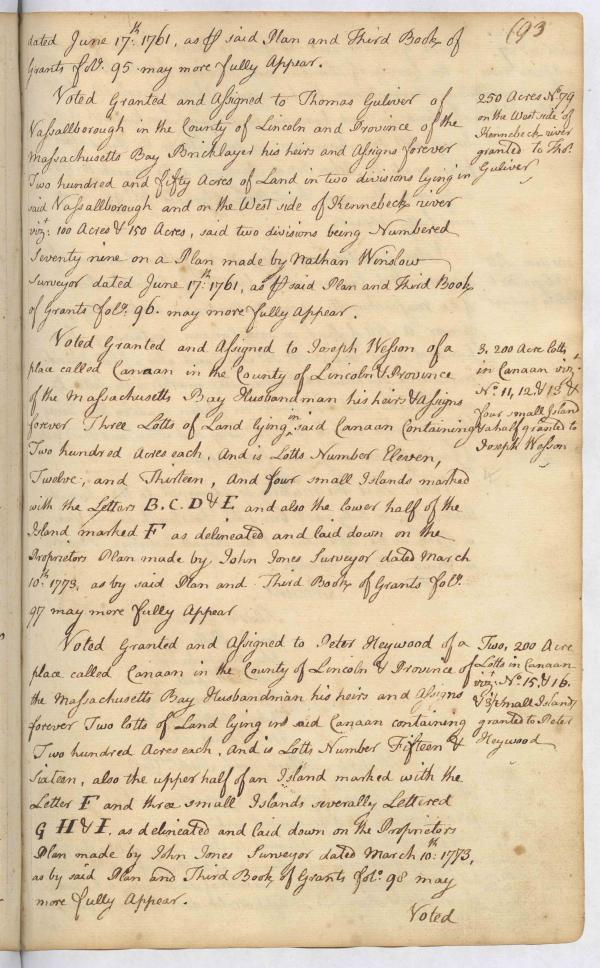 193
dated June 17th: 1761, as ℘ said Plan and Third Book of
Grants folo. 95 may more fully Appear.
Voted Granted and Assigned to Thomas Guliver of
Vassallborough in the County of Lincoln and Province of the
Massachusetts Bay Bricklayer his heirs and Assigns forever
Two hundred and fifty Acres of Land in two divisions lying in
said Vassallborough and on the West side of Kennebeck river
vizt: 100 Acres & 150 Acres, said two divisions being Numbered
Seventy nine on a Plan made by Nathan Winslow
Surveyor dated June 17th: 1761, as ℘ said Plan and Third Book
of Grants folo. 96. may more fully Appear.
250 Acres No. 79
on the West side of
Kennebeck river
granted to Tho:
Guliver
Voted Granted and Assigned to Joseph Wesson of a
place called Canaan in the County of Lincoln & Province
of the Massachusetts Bay Husbandman his heirs & Assigns
forever Three Lotts of Land lying in said Canaan Containing
Two hundred Acres each, And is Lotts Number Eleven,
Twelve, and Thirteen, And four small Islands marked
with the Letters B. C. D & E and also the lower half of the
Island marked F as delineated and laid down on the
Proprietors Plan made by John Jones Surveyor dated March
10th: 1773, as by said Plan and Third Book of Grants folo.
97 may more fully Appear
3. 200 Acre lotts
in Canaan vizt.
No. 11, 12, & 13 &
four small Island
& a half granted to
Joseph Wesson
Voted Granted and Assigned to Peter Heywood of a
place called Canaan in the County of Lincoln & Province of
the Massachusetts Bay Husbandman his heirs and Assigns
forever Two lotts of Land lying in said Canaan containing
Two hundred Acres each, And is Lotts Number Fifteen &
Sixteen, also the upper half of an Island marked with the
Letter F and three small Islands severally Lettered
G H & I, as delineated and laid down on the Proprietors
Plan made by John Jones Surveyor dated March 10th: 1773,
as by said Plan and Third Book of Grants folo. 98 may
more fully Appear.
Two, 200 Acre
Lotts in Canaan
vizt: No. 15, & 16.
& small Islands
granted to Peter
Heywood
Voted